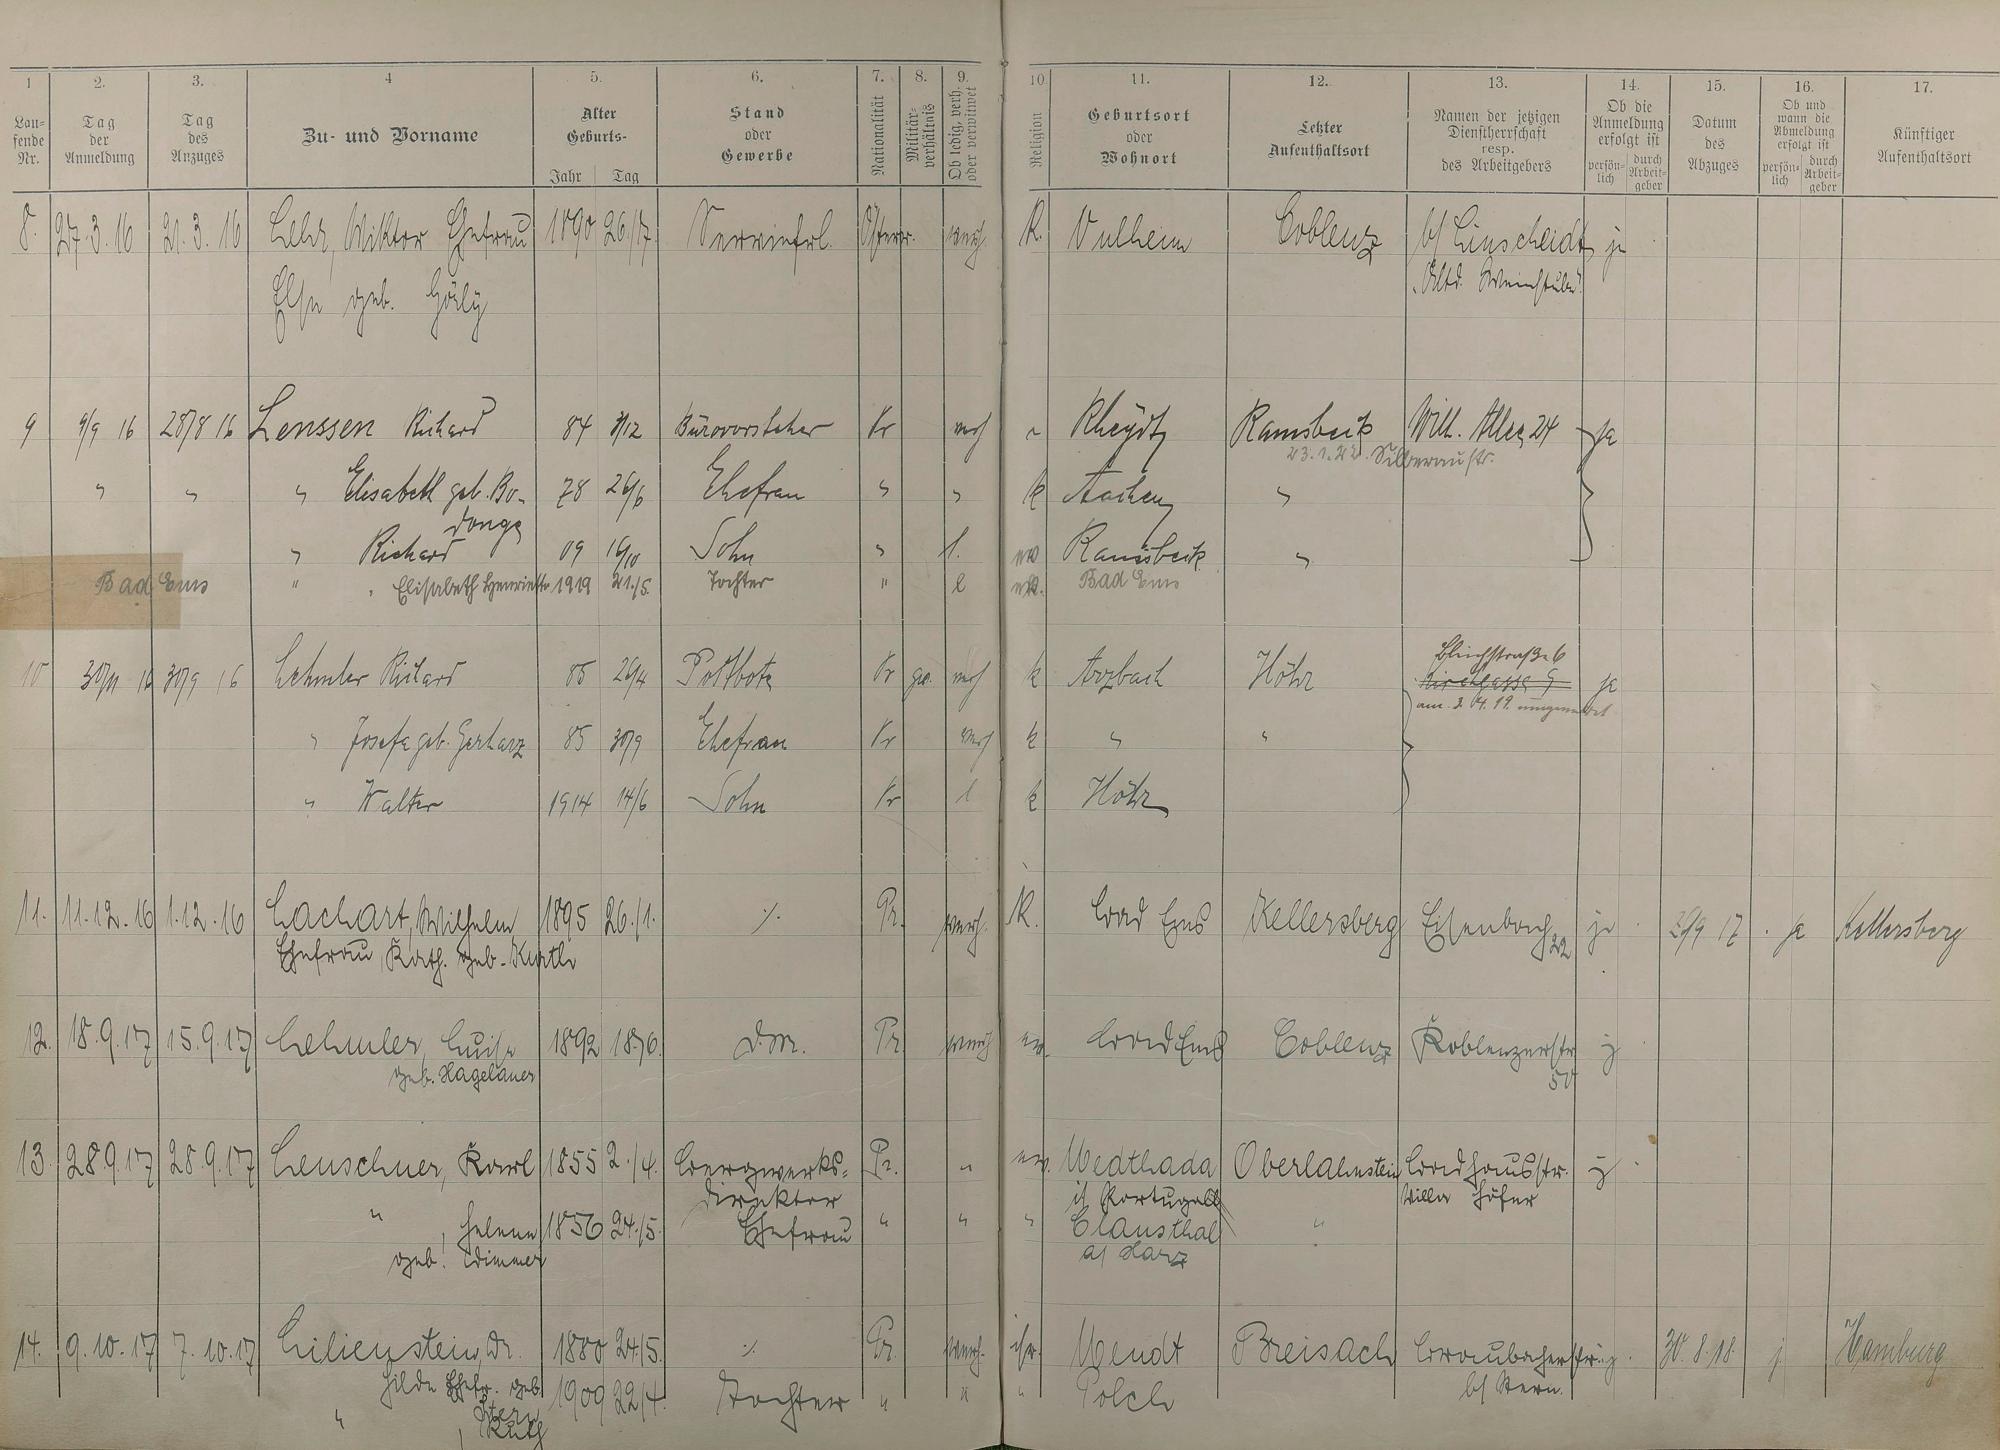 1 2. 3. 4 5. 6. 7. 8. 9. 10 11. 12. 13. 14. 15. 16. 17.
Lau-
fende
Nr.
Tag
der
Anmeldung
Tag
des
Anzuges
Zu- und Vorname
Alter
Geburts-
Jahr Tag
Stand
oder
Gewerbe
Nationalität
Militär-
verhältnis
Ob ledig, verh.
oder verwitwet
Religion
Geburtsort
oder
Wohnort
Letzter
Aufenthaltsort
Namen der jetzigen
Dienstherrschaft
resp.
des Arbeitgebers
Ob die
Anmeldung
erfolgt ist
persön-
lich
durch
Arbeit-
geber
Datum
des
Abzuges
Ob und
wann die
Abmeldung
erfolgt ist
persön-
lich
durch
Arbeit-
geber
Künftiger
Aufenthaltsort
8. 27.3.16 21.3.16 Lehr, Wiktor Ehefrau 1890 26/7. Servierfrl. Österr. verh. K. Coblenz b/ Linscheidt ja
Else geb. „Altd. Weinstube"
9 9/9 16 28/8 16 Lenssen Richard 84 3/12 Bürovorsteher Pr verh Rheydt Ramsbeck Wilh. Allee 24 ja
23.1.22. Silberaustr.
" " " Elisabeth geb. Bo- 78 26/6 Ehefrau " " k Aachen "
donge
" Richard 09 16/10 Sohn " l. ev Ramsbeck "
Bad Ems " " Elisabeth Henriette 1919 21./5. Tochter " l ev. Bad Ems
10 30/9 16 Lehmler Richard 85 26/4 Postbote Pr ged. verh k Arzbach Höhr Bleichstraße 6 ja
Kirchgasse 9
am 3. 4. 19. umgemeldet
" Josefa geb. Gerharz 85 30/9 Ehefrau Pr verh k " "
" Walter 1914 14/6 Sohn Pr l k Höhr
11. 11.12.16 1.12.16 Lachart, Wilhelm 1895 26./1. ./. Pr. verh. K. Bad Ems Kellersberg Eisenbach 22 ja 29/9 17 ja Kellersberg
Ehefrau, Kath. geb.
12. 18.9.17 15.9.17 Lehmler, Luise 1892 18/6. Pr. verh ev. Bad Ems Coblenz Koblenzerstr. j
geb. Hagelauer 50
13. 28.9.17 28.9.17 Leuschner, Karl 1855 2./4. Bergwerks- Pr. " ev. Oberlahnstein Badhausstr. j
direktor i/ Portugall Villa Höfer
" , Helene 1856 24./5. Ehefrau " " " Clausthal "
geb. a/ Harz
14. 9.10.17 7.10.17 Lilienstein, Dr. 1880 24/5. ./. Pr. verh. isr. Breisach Braubacherstr. j. 30.8.18. j Hamburg
Hilde Ehefr. geb. b/ Stern.
Stern
" , Ruth 1909 22/4. Tochter " " " Polch